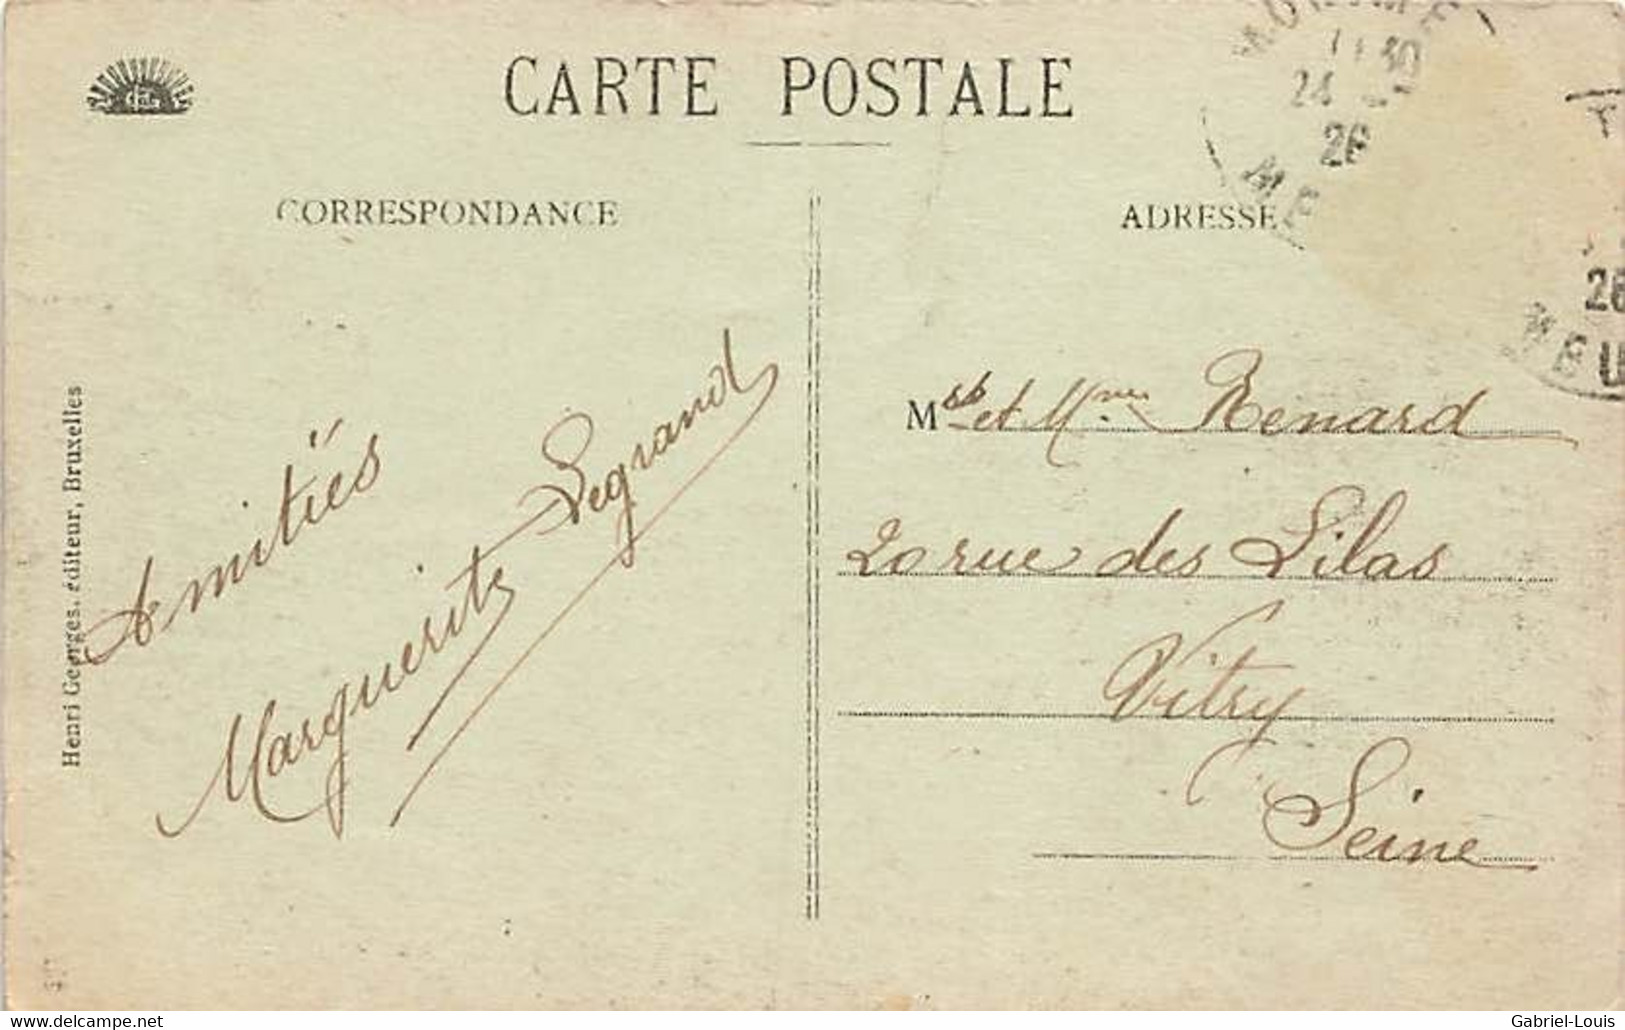 CARTE POSTALE
CORRESPONDANCE
ADRESSE
24
26
26
MEU
Henri Georges, éditeur, Bruxelles
Amitiés
Marguerite Legrand
M et Mme Renard
20 rue des Lilas
Vitry
Seine
www.delcampe.net
Gabriel-Louis